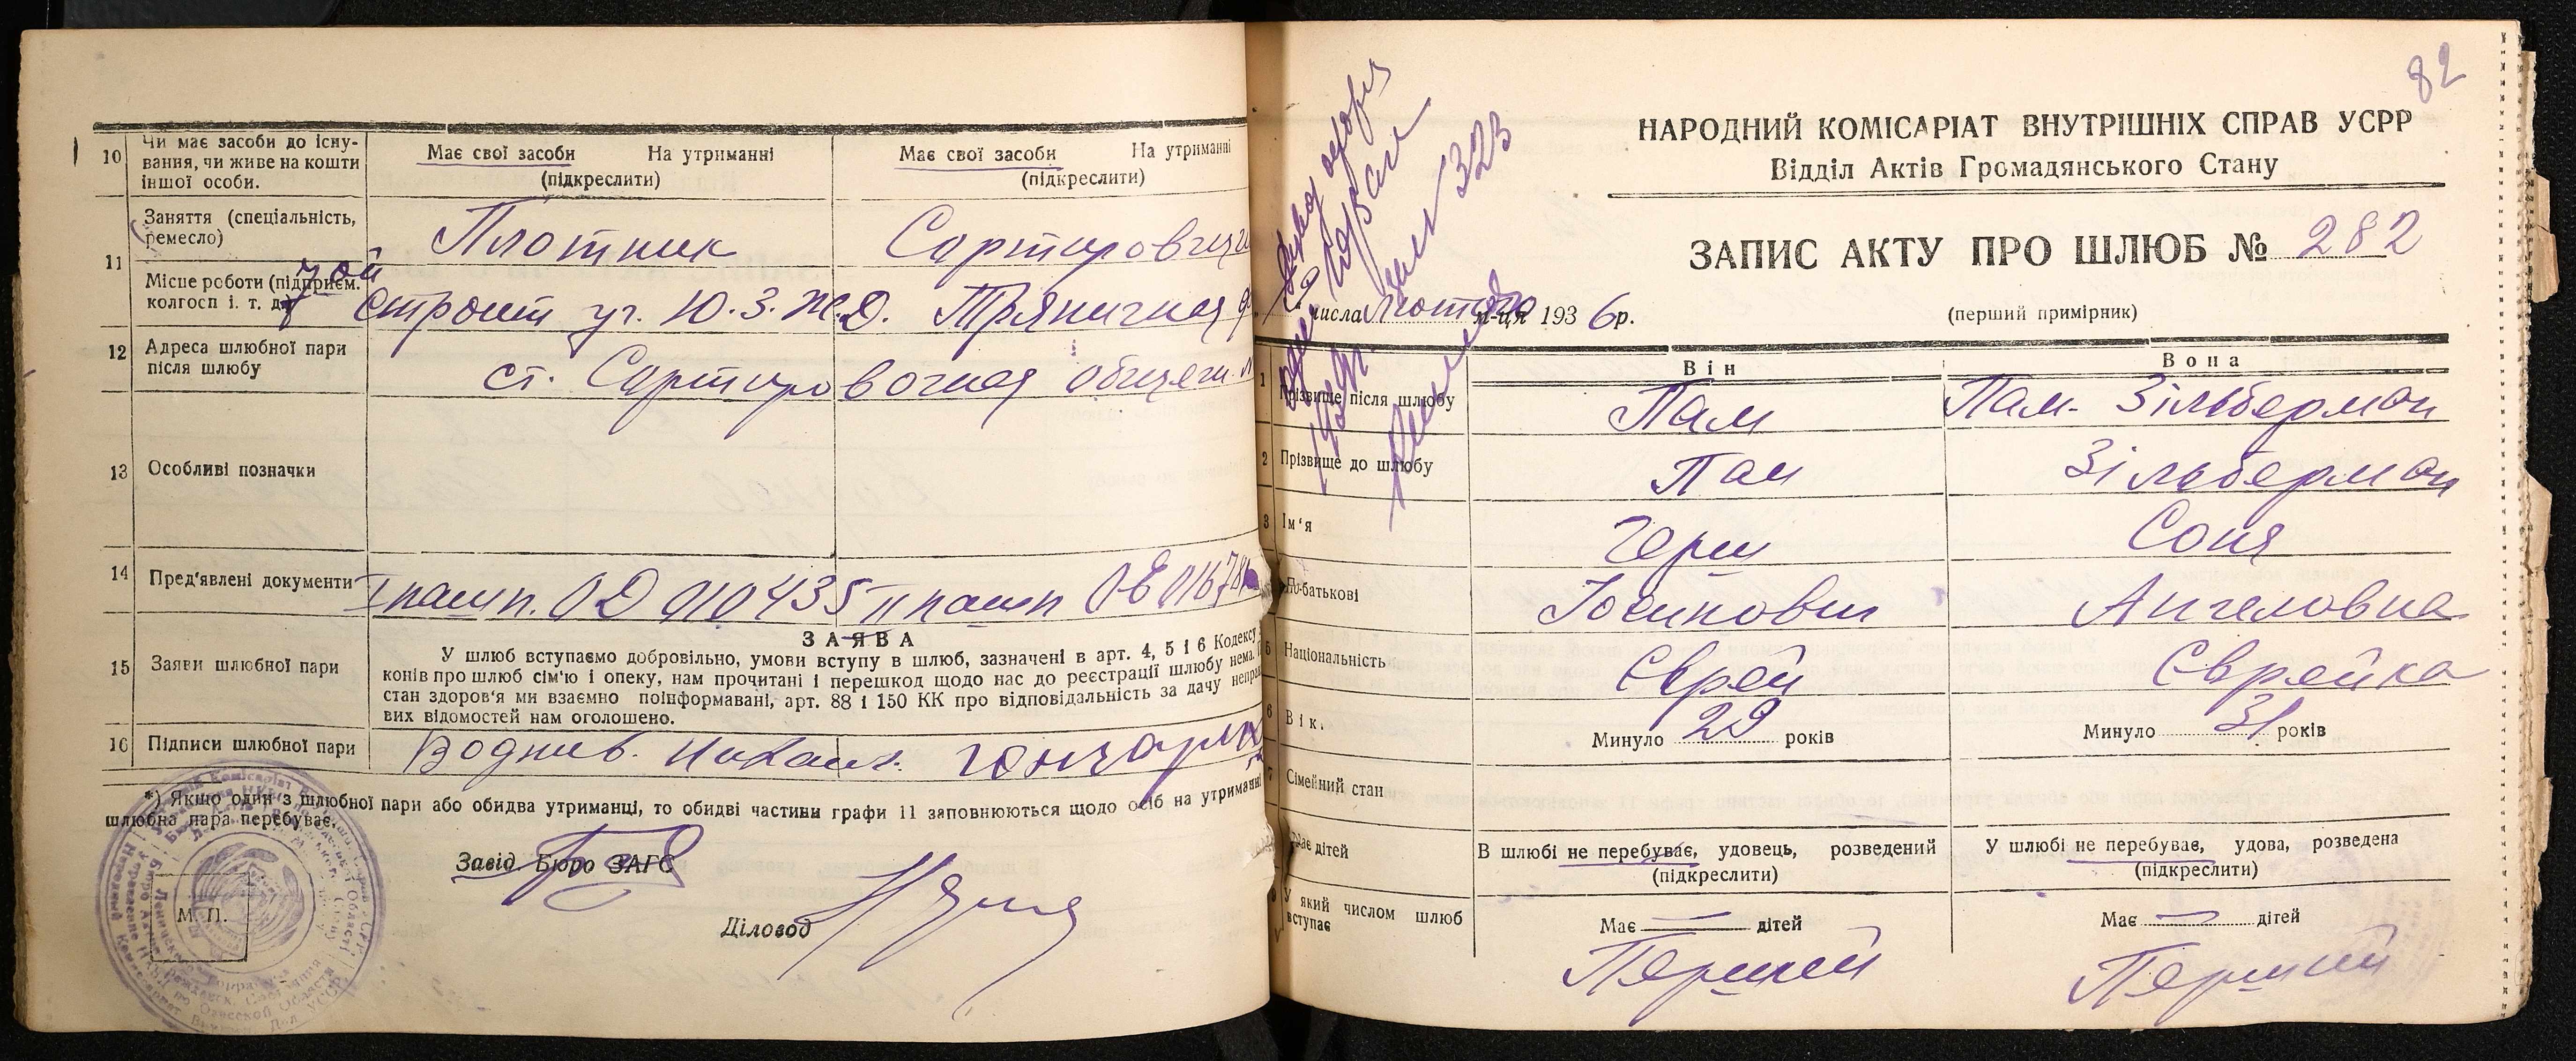 10
Чи має засоби до існу-
вання, чи живе на кошти
іншої особи.
Має свої засоби На утриманні
(підкреслити)
Має свої засоби На утриманні
(підкреслити)
11
Заняття (спеціальність,
ремесло)
Плотник
Місце роботи (підприєм.
колгосп і. т. д.
Строит уч. Ю.З.Ж.Д.
Тряпичная ф.
12
Адреса шлюбної пари
після шлюбу
ст. Сортировочная
13
Особливі позначки
14
Пред'явлені документи
I пашп. ОД 010435 II пашп
15
Заяви шлюбної пари
ЗАЯВА
У шлюб вступаємо добровільно, умови вступу в шлюб, зазначені в арт. 4, 5 і 6 Кодексу
конів про шлюб сім'ю і опеку, нам прочитані і перешкод щодо нас до реєстрації шлюбу нема.
стан здоров'я ми взаємно поінформавані, арт. 88 і 150 КК про відповідальність за дачу неправ
вих відомостей нам оголошено.
16
Підписи шлюбної пари
*) Якщо один з шлюбної пари або обидва утриманці, то обидві частини графи 11 заповнюються щодо осіб на утриманні
шлюбна пара перебуває.
Завід. Бюро ЗАГС
М. П.
Діловод
82
НАРОДНИЙ КОМІСАРІАТ ВНУТРІШНІХ СПРАВ УСРР
Відділ Актів Громадянського Стану
ЗАПИС АКТУ ПРО ШЛЮБ № 282
числа лютого м-ця 1936 р.
(перший примірник)
323
Він
Вона
1
Прізвище після шлюбу
Пам
Пам-Зільберман
2
Прізвище до шлюбу
Пам
Зільберман
3
Ім'я
Герш
Соня
По-батькові
Іосипович
Ангеловна
5
Національність
Єврей
Єврейка
6
Вік.
Минуло 29 років
Минуло 31 років
Сімейний стан
В шлюбі не перебуває, удовець, розведений
(підкреслити)
У шлюбі не перебуває, удова, розведена
(підкреслити)
дітей
Має — дітей
Має — дітей
У який числом шлюб
вступає
Перший
Перший